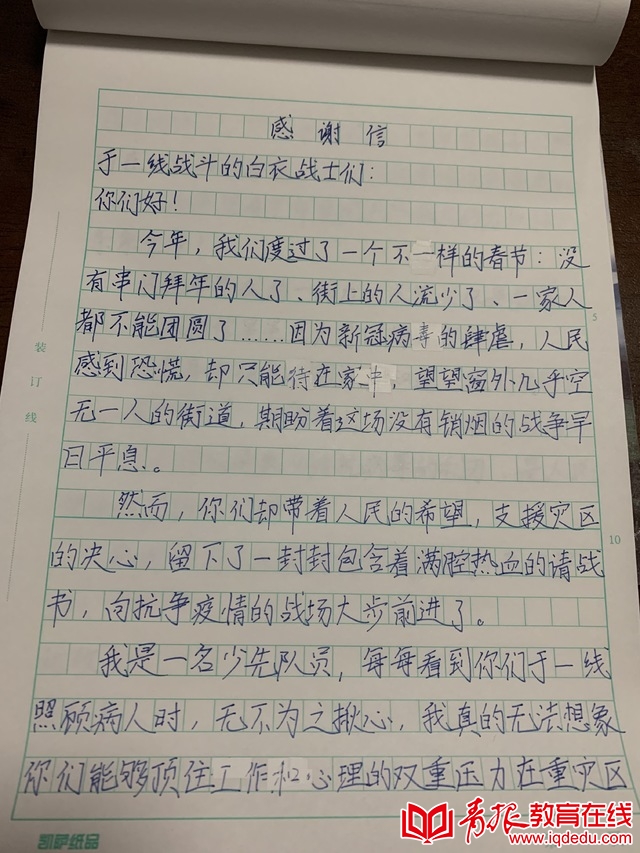 感谢信
于一线战斗的白衣战士们：
你们好！
今年，我们度过了一个不一样的春节：没
有串门拜年的人了、街上的人流少了、一家人
都不能团圆了……因为新冠病毒的肆虐，人民
感到恐慌，却只能待在家中，望望窗外几乎空
无一人的街道，期盼着这场没有销烟的战争早
日平息。
然而，你们却带着人民的希望，支援灾区
的决心，留下了一封封包含着满腔热血的请战
书，向抗争疫情的战场大步前进了。
我是一名少先队员，每每看到你们于一线
照顾病人时，无不为之揪心，我真的无法想象
你们能够顶住工作和心理的双重压力在重灾区
装订线
5
10
凯萨纸品
青报教育在线
www.iqdedu.com